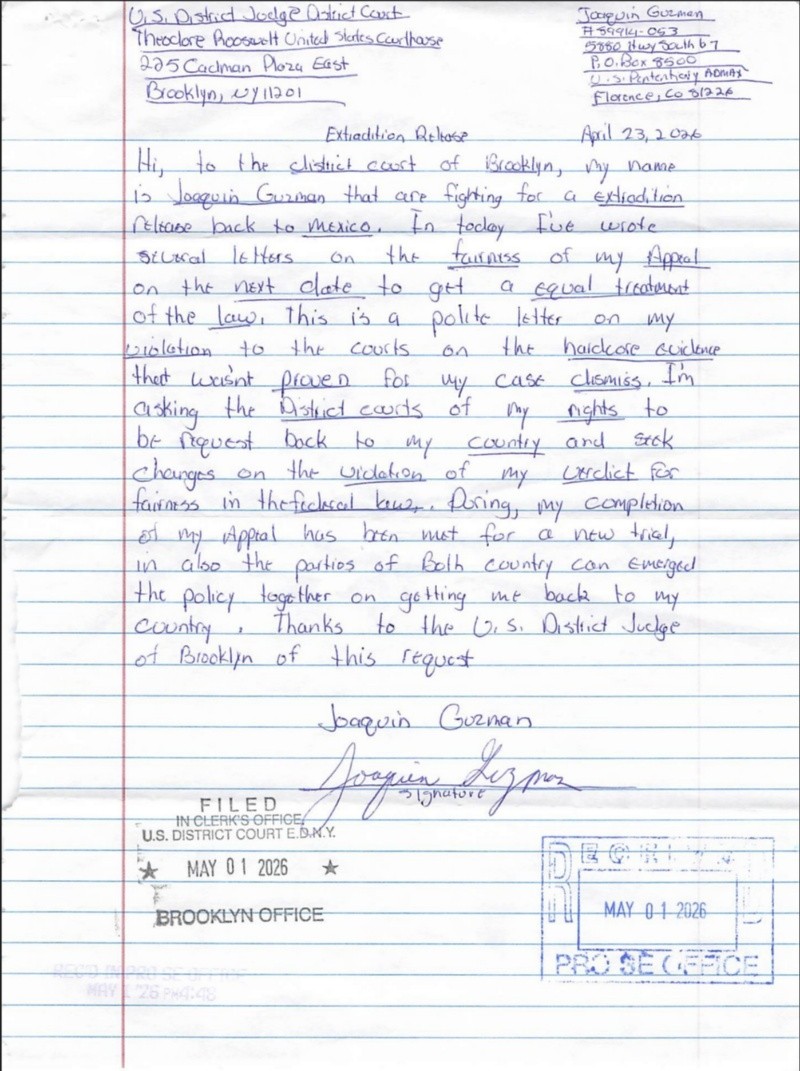 U.S. District Judge District Court
Theodore Roosevelt United States Courthouse
225 Cadman Plaza East
Brooklyn, NY 11201
Joaquin Guzman
# 89914-053
5880 Hwy South 67
P.O. Box 8500
U.S. Pentientiary ADMAX
Florence, Co 81226
Extradition Release
April 23, 2026
Hi, to the district court of Brooklyn, my name
is Joaquin Guzman that are fighting for a extradition
release back to Mexico. In today I've wrote
several letters on the fairness of my Appeal
on the next date to get a equal treatment
of the law. This is a polite letter on my
violation to the courts on the hardcore evidence
that wasn't proven for my case dismiss. I'm
asking the District courts of my rights to
be request back to my country and seek
changes on the violation of my verdict for
fairness in the federal law. During, my completion
of my Appeal has been met for a new trial,
in also the parties of Both country can emerged
the policy together on getting me back to my
country. Thanks to the U.S. District Judge
of Brooklyn of this request
Joaquin Guzman
Joaquin Guzman
signature
FILED
IN CLERK'S OFFICE
U.S. DISTRICT COURT E.D.N.Y.
★ MAY 01 2026 ★
BROOKLYN OFFICE
MAY 01 2026
PRO SE OFFICE
REC'D IN PRO SE OFFICE
MAY 1 '26 PM4:48